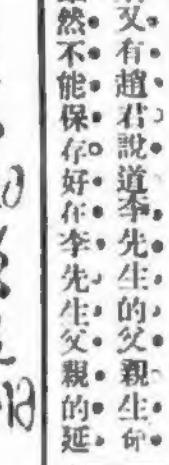 又有趙君說道李先生的父親生命
然不能保存好在李先生父親的延